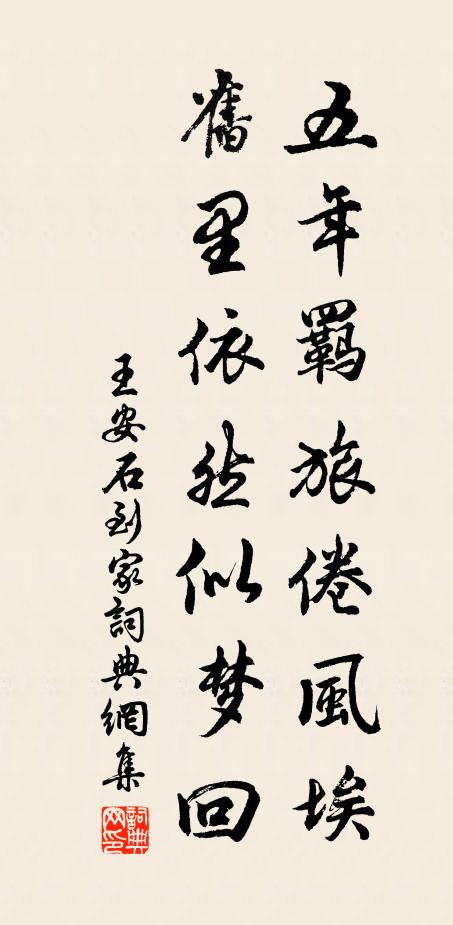 五年羈旅倦風埃
舊里依然似梦回
王安石到家詞典網集
詞典网印